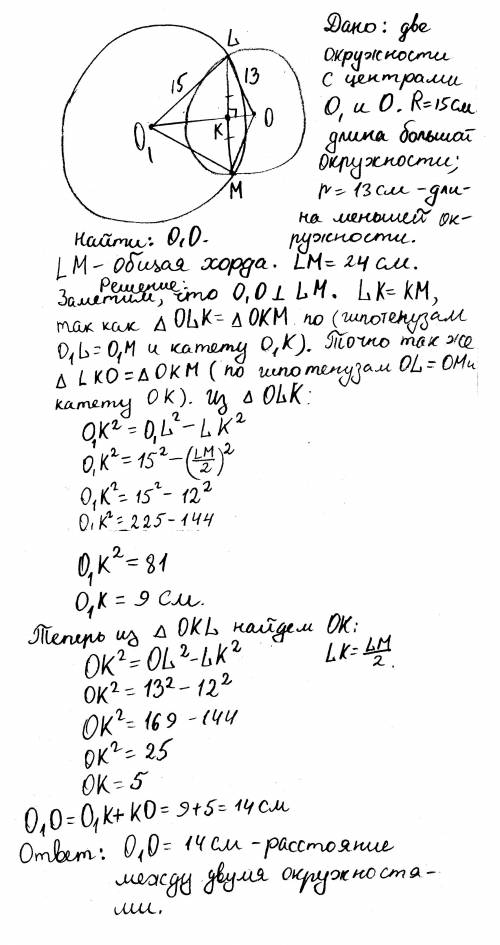 Дано: две
окружности
с центрами
O₁ и O. R=15см
длина большой
окружности;
r=13см -дли-
на меньшей ок-
ружности.
L
15
13
O₁
K
O
M
Найти: O₁O.
LM- общая хорда. LM=24 см.
Решение:
Заметим, что O₁O⊥LM. LK=KM,
так как △OLK=△OKM по (гипотенузам
O₁L=O₁M и катету O₁K). Точно так же
△LKO=△OKM (по гипотенузам OL=OM и
катету OK). Из △OLK:
O₁K²=O₁L²-LK²
O₁K²=15²-(LM/2)²
O₁K²=15²-12²
O₁K²=225-144
O₁K²=81
O₁K=9 см.
Теперь из △OKL найдем OK:
OK²=OL²-LK² LK=LM/2.
OK²=13²-12²
OK²=169-144
OK²=25
OK=5
O₁O=O₁K+KO=9+5=14см
Ответ: O₁O=14см -расстояние
между двумя окружностя-
ми.